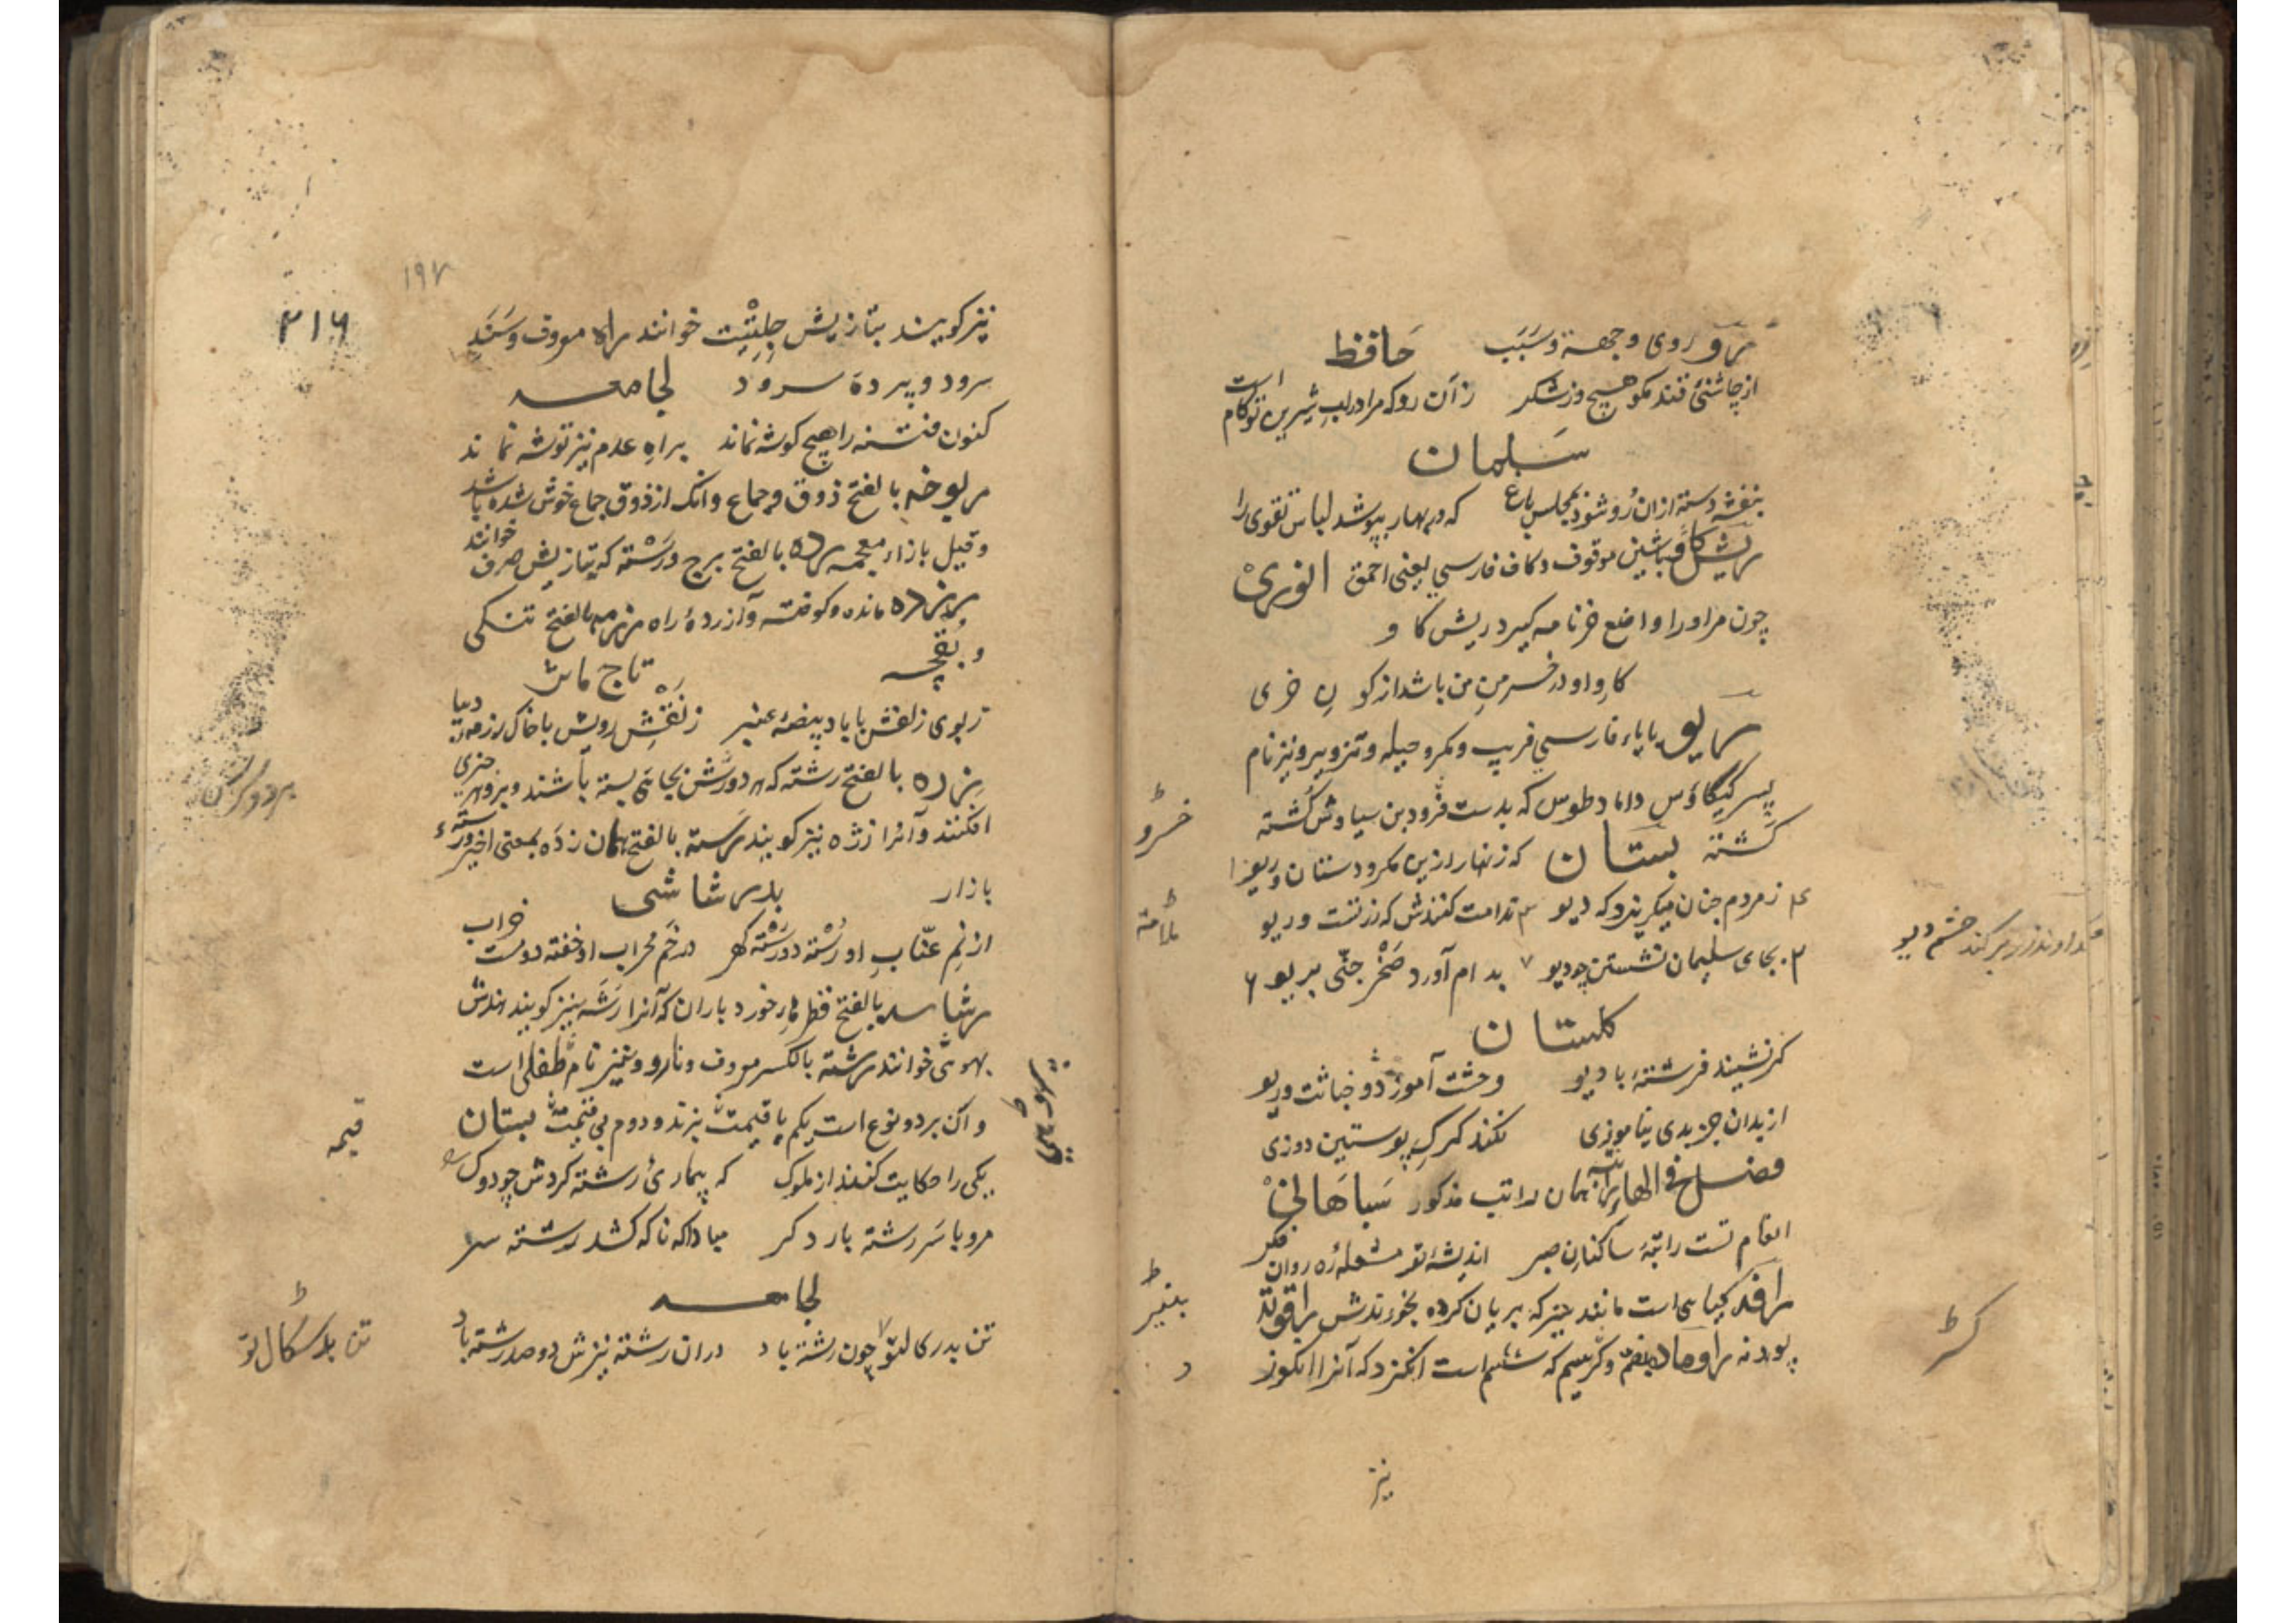 رو روی و جهة و سَبَب حَافظ
از چاشنئ قند مکو هیچ و ز شکر زآن رو که مرا در لبِ شیرین تو کام است
سَلمان
بنفشه دسته ازان رُو شود بمجلس باغ که در بهار بپوشد لباس تقوی را
ریش کاو باشین موقوف و کاف فارسی یعنی احمق انوری
چون مرا و را واضع خرنامه کیرد ریش کاو
کاوِ او در خرمنِ من باشد از کونِ خری
ریو با یاء فارسی فریب و مکر و حیله و تزویر و نیز نام
پسر کیکاؤس داماد طوس که بدست فرود بن سیاوش کُشته
کشته بستان که زنهار ازین مکر و دستان و ریو
ز مردم چنان میکریزد که دیو ندامت کنندش که زرقست و ریو
بجای سلیمان نشستن چو دیو بدام آورد صَخْر جنّی بریو
کلستان
کر نشیند فرشتهٔ با دیو وحشت آموزد و خیانت و ریو
از بدان جز بدی نیاموزی نکند کرک پوستین دوزی
فصل فی الهاء راتبه همان راتب مذکور سَبَاهَانیْ
انعام تست راتبهٔ ساکنان صبر اندیشهٔ تو مشعلهٔ ره روان فکر
رافه کیاهی است مانند چیز که بریان کرده بخورندش راقوته
پودنه راوماده بفتح و کریسم که ششم است انکزد که آنرا انکوز
نیز
خسرو
ملامة
خداوند زر بر کند چشم دیو
بنیر
کژ
۳۱۶
۱۹۷
نیز کویند بتازیش حِلتِیْت خوانند راه معروف و سَنَد
سرود و پردهٔ سرود لجامعه
کنون فتنه را هیچ کوشه نماند براه عدم نیز توشه نماند
ریوخه بالفتح ذوق و جماع و انک از ذوق جماع خوش شده باشد
و قیل بازاء معجمه رده بالفتح برج و رَسْته که بتازیش صف خوانند
مانده و کوفته و آزردهٔ راه رزمه بالفتح تنکی
و بقچه تاج ماش
ز بوی زلفش با باد بیضهٔ عنبر ز نقش رویش با خاک رزمهٔ دیبا
رزه بالفتح رشته که هر دو سرش بجائی بسته باشند و برو هر چیزی
افکنند و آنرا رژه نیز کویند رسته بالفتح همان رده بمعنی اخیر و رستهٔ
بازار بدر شاشی
از نمِ عنّابِ او رُسْته دو رَسْته کهر در خَم محراب او خفته دو مست خراب
رشاسه بالفتح قطرهای خورد باران که آنرا رَشَه نیز کویند هندش
بهوئی خوانند رشته بالکسر معروف و نارو و نیز نام طفلی است
و آن بر دو نوع است یکم با قیمت بزند و دوم بی قیمت بستان
یکی را حکایت کنند از ملوک که بیماریٔ رشته کردش چو دوک
مرو با سَر رشته بار دکر مبادا که ناکه کشد رشته سر
لجامعه
تن بدرکال تو چون رشته باد دران رشته نیزش دو صد رشته باد
قیمه
تن بد سکال تو